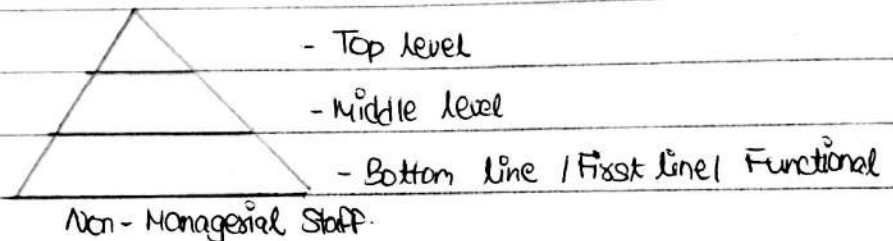 - Top level
- Middle level
- Bottom line / First line / Functional
Non-Managerial Staff.